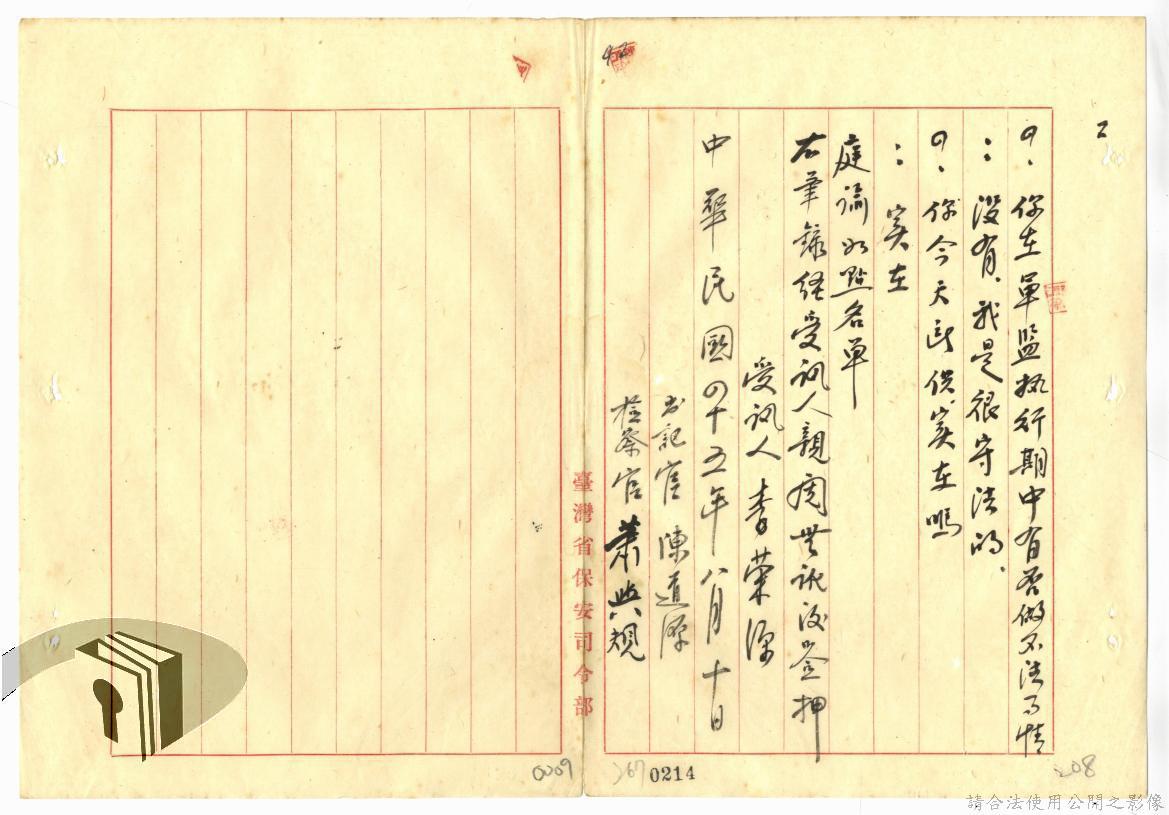 2
四、你在軍監執行期中有否做不法事情
：沒有、我是很守法的、
四、你今天所供實在嗎
：實在
庭諭如點名單
右筆錄經受訊人親閱無訛後簽押
受訊人 李榮
中華民國四十五年八月十日
書記官 陳道
檢察官 蕭與規
臺灣省保安司令部
0009
267
0214
208
請合法使用公開之影像